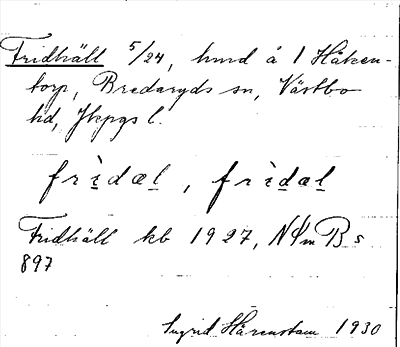 Fridhäll 5/24, hmd å 1 Håken-
torp, Bredaryds sn, Västbo
hd, Jkpgs l.
frìdæl, frìdal
Fridhäll kb 1927, N Sm B s
897
Ingrid Hårenstam 1930